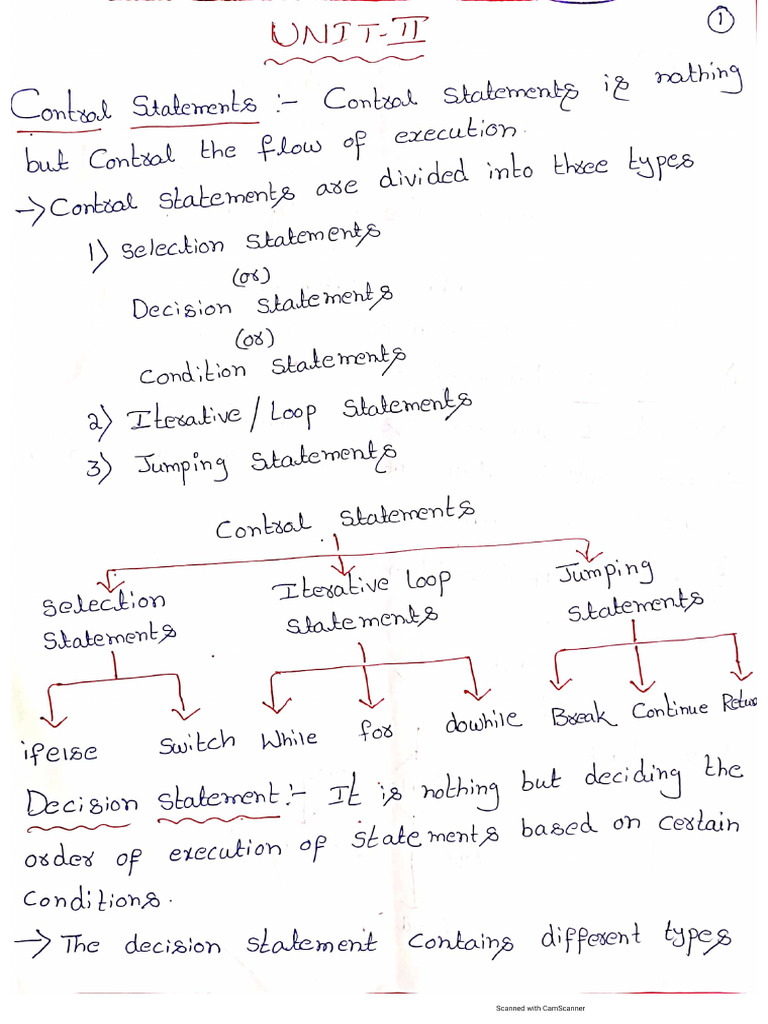 UNIT-II
1
Control Statements :- Control statements is nothing
but Control the flow of execution.
→ Control statements are divided into three types
1) Selection Statements
(or)
Decision Statements
(or)
Condition Statements
2) Iterative / Loop Statements
3) Jumping Statements
Control Statements
Selection Statements
Iterative Loop Statements
Jumping Statements
ifelse Switch While for dowhile Break Continue
Decision Statement :- It is nothing but deciding the
order of execution of statements based on certain
Conditions.
→ The decision statement contains different types
Scanned with CamScanner